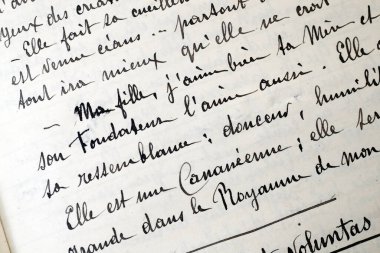 yeux des créa
- Elle fait sa cueillett
est venue céans ... partout
tout ira mieux qu'elle ne croit
- Ma fille, j'aime bien ta Mère et
son Fondateur l'aime aussi. Elle a
sa ressemblance : douceur, humilit
Elle est une Cananéenne ; elle ser
grande dans le Royaume de mon
Voluntas